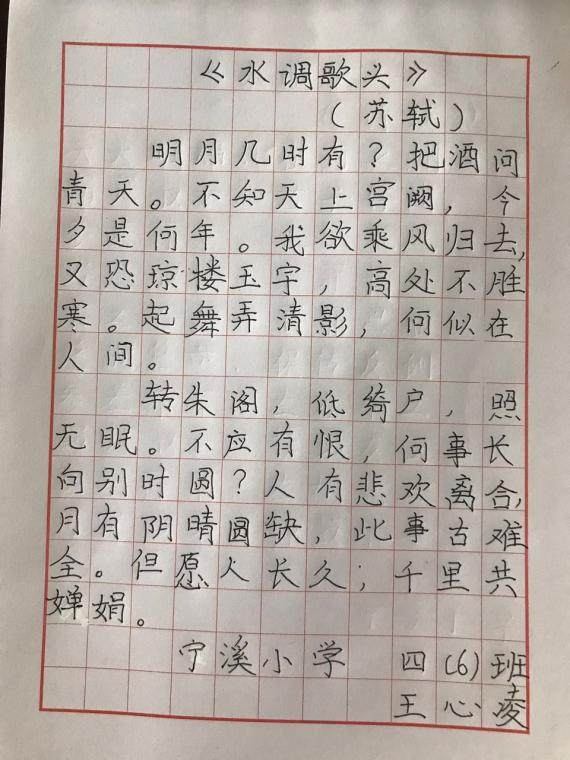 《水调歌头》
（苏轼）
明月几时有？把酒问
青天。不知天上宫阙，今
夕是何年。我欲乘风归去，
又恐琼楼玉宇，高处不胜
寒。起舞弄清影，何似在
人间。
转朱阁，低绮户，照
无眠。不应有恨，何事长
向别时圆？人有悲欢离合，
月有阴晴圆缺，此事古难
全。但愿人长久；千里共
婵娟。
宁溪小学 四（6）班
王心凌